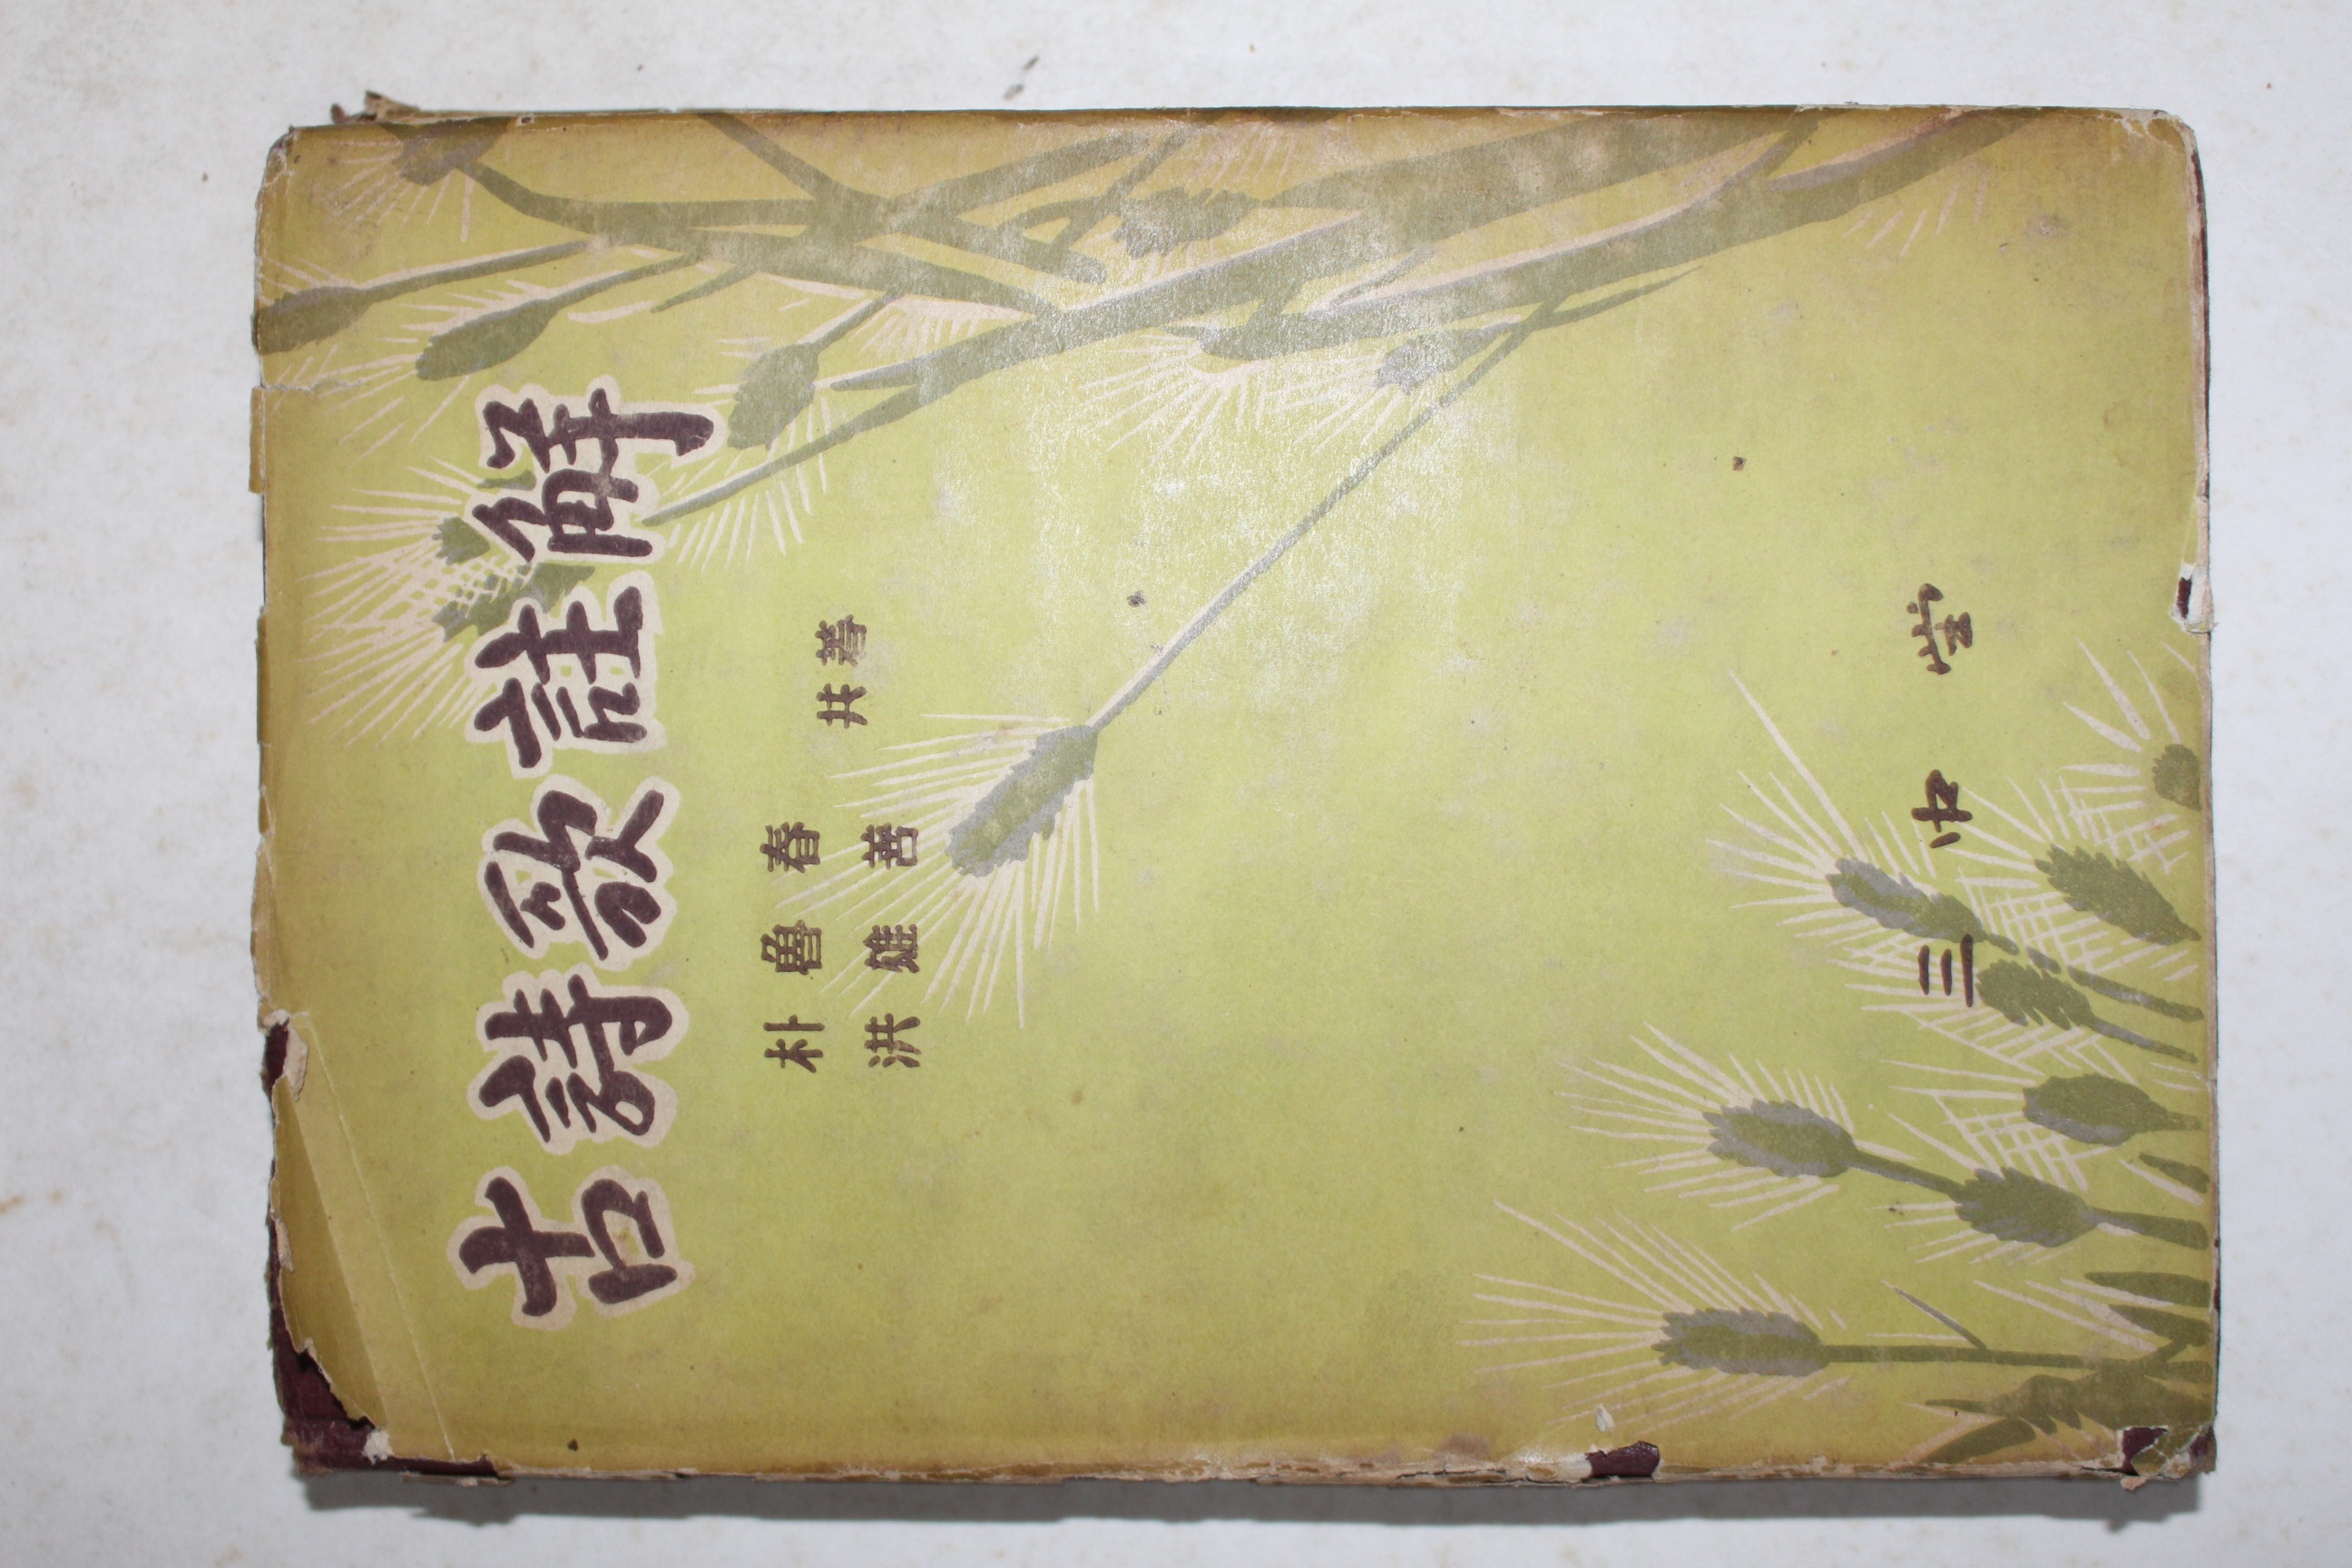 古詩歌註解
朴魯春
洪雄善
共著
三中堂